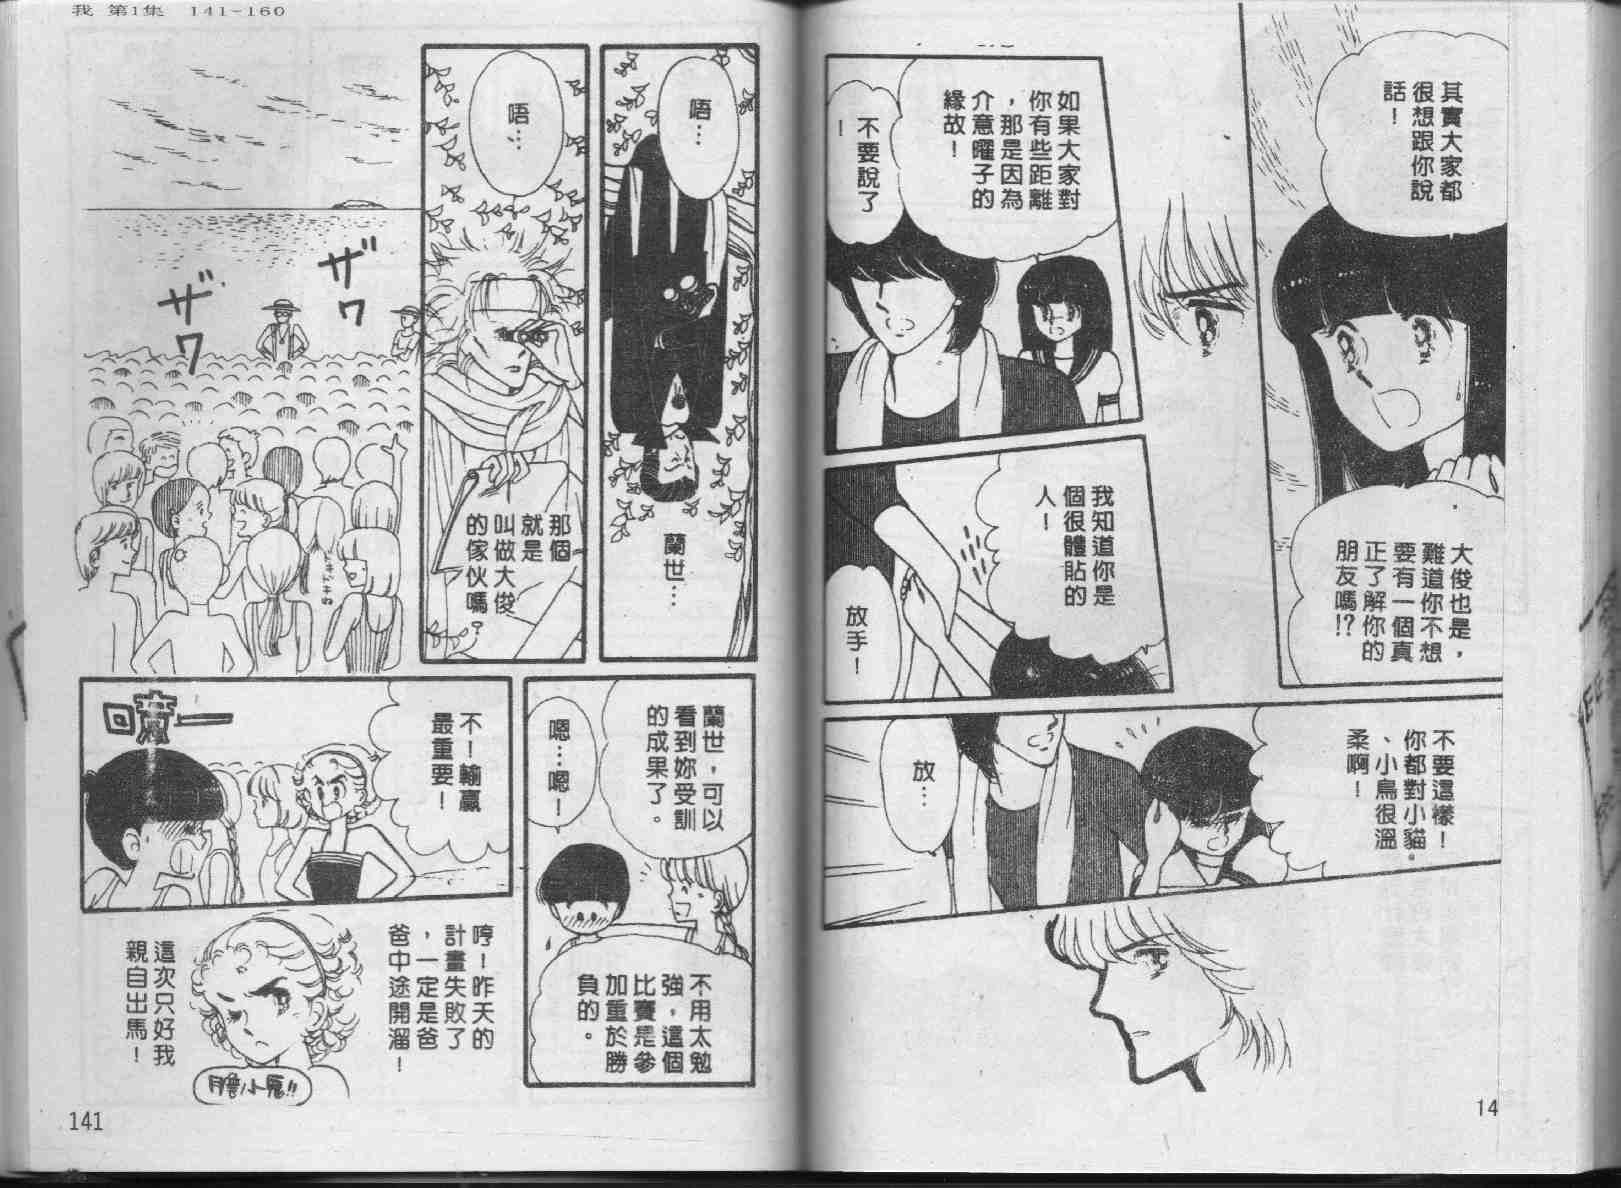 我 第1集 141-160
其實大家都
很想跟你說
話！
大俊也是，
難道你不想
要有一個真
正了解你的
朋友嗎!?
如果大家對
你有些距離
，那是因為
介意曜子的
緣故！
不要說了
！
我知道你是
個很體貼的
人！
放手！
不要這樣！
你都對小貓。
、小鳥很溫
柔啊！
放…
14
唔…
蘭世…
唔…
那個
就是
叫做大俊
的傢伙嗎？
ザワ
ザワ
蘭世，可以
看到妳受訓
的成果了。
嗯…嗯！
不用太勉
強，這個
比賽是參
加重於勝
負的。
不！輸贏
最重要！
哼！昨天的
計畫失敗了
，一定是爸
爸中途開溜！
這次只好我
親自出馬！
膽小鬼!!
141